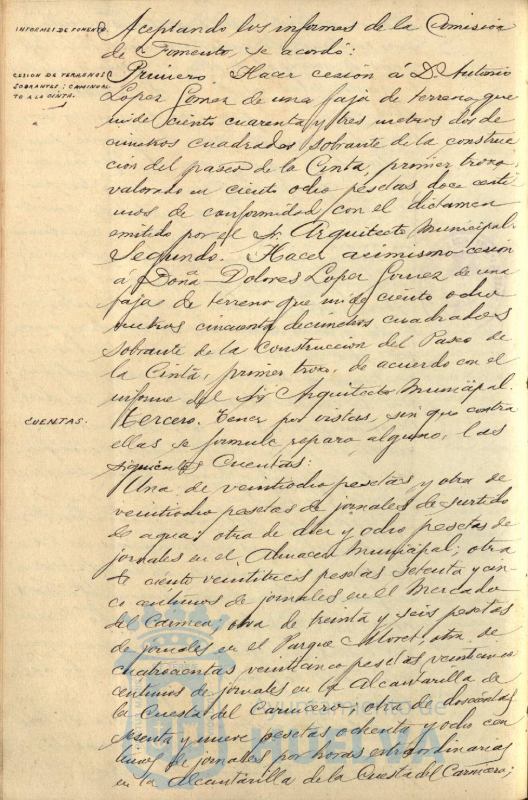 INFORMES DE FOMENTO.
Aceptando los informes de la Comisión
de Fomento, se acordó:
CESION DE TERRENOS
SOBRANTES: CAMINO AL-
TO A LA CINTA.
Primero. Hacer cesión á D. Antonio
Lopez Gomez de una faja de terreno que
mide ciento cuarenta y tres metros dos de
cimetros cuadrados sobrante de la construc
ción del paseo de la Cinta, primer trozo,
valorado en ciento ocho pesetas doce centi
mos de conformidad con el dictamen
emitido por el Sr. Arquitecto Municipal.
Segundo. Hacer asimismo cesión
á Doña Dolores Lopez Gomez de una
faja de terreno que mide ciento ocho
metros cincuenta decimetros cuadrados
sobrante de la construcción del Paseo de
la Cinta, primer trozo, de acuerdo con el
informe del Sr. Arquitecto Municipal.
CUENTAS.
Tercero. Tener por vistas, sin que contra
ellas se formule reparo alguno, las
siguientes Cuentas:
Una de veintiocho pesetas y otra de
veintiocho pesetas de jornales de surtido
de agua; otra de diez y ocho pesetas de
jornales en el Almacen Municipal; otra
de ciento veintitres pesetas setenta y cin-
co centimos de jornales en el Mercado
del Carmen; otra de treinta y seis pesetas
de jornales en el Parque Moret; otra de
cuatrocientas veinticinco pesetas veinticinco
centimos de jornales en la Alcantarilla de
la Cuesta del Carnicero; otra de doscientas
sesenta y nueve pesetas ochenta y ocho cen
timos de jornales por horas extraordinarias
en la Alcantarilla de la Cuesta del Carnicero;
HUELVA